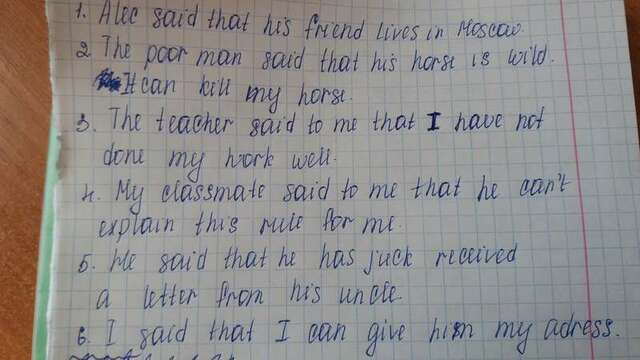 1. Alec said that his friend lives in Moscow.
2. The poor man said that his horse is wild.
It can kill my horse.
3. The teacher said to me that I have not
done my work well.
4. My classmate said to me that he can't
explain this rule for me.
5. he said that he has juck received
a letter from his uncle
6. I said that I can give him my adress.